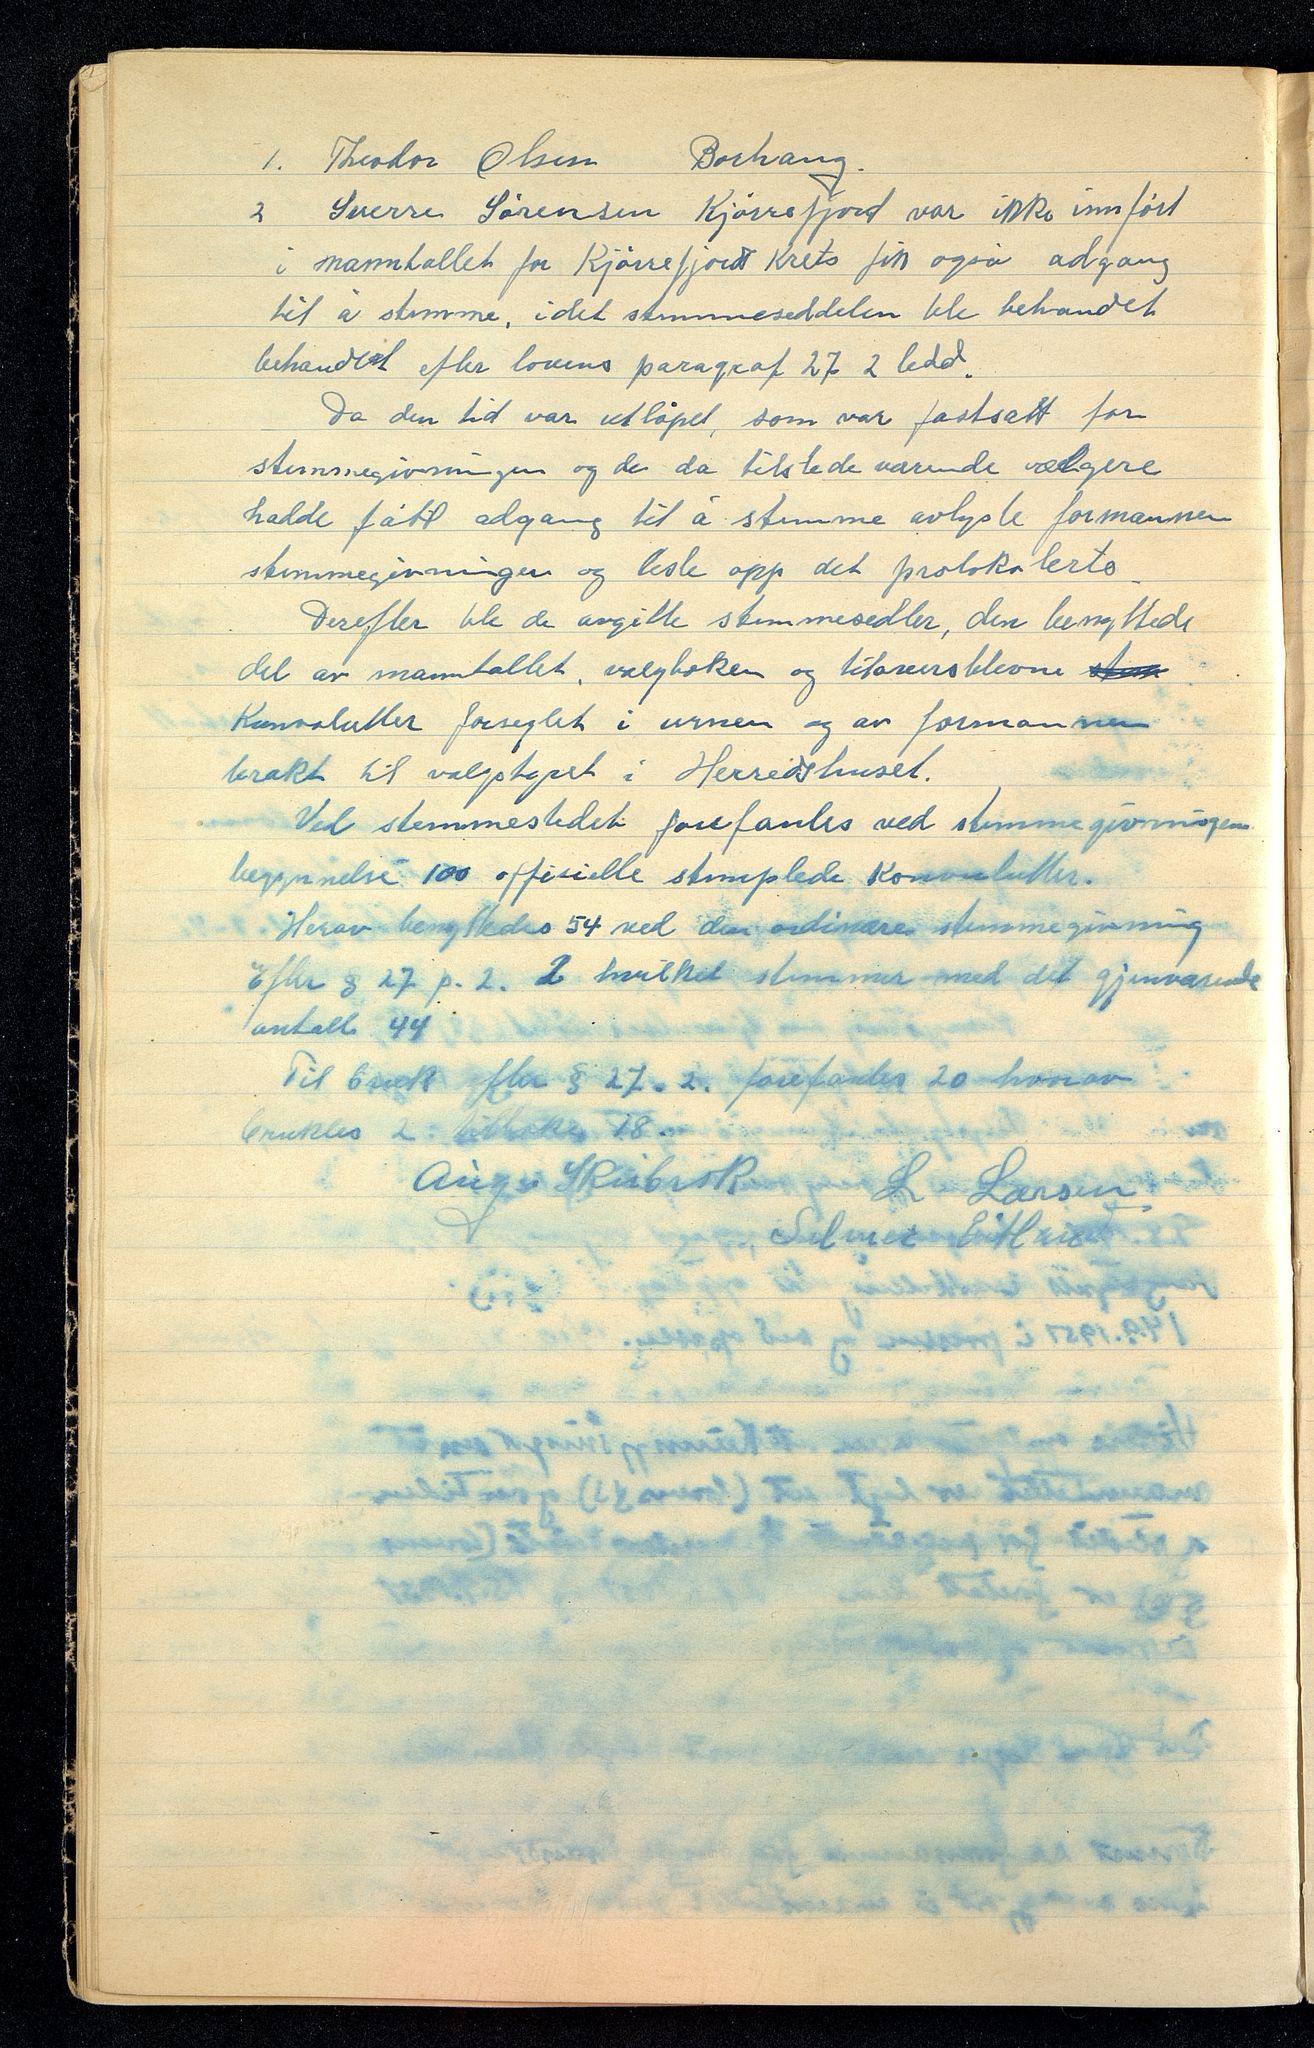 1. Theodor Olsen Borhaug.
2 Sverre Sörensen Kjörrefjord var ikke innfört
i manntallet for Kjörrefjord Krets fikk også adgang
til å stemme, idet stemmeseddelen ble behandlet
behandlet efter lovens paragraf 27 2 ledd.
Da den tid var utlöpet, som var fastsatt for
stemmegivningen og de da tilstede varende vælgere
hadde fått adgang til å stemme avlyste formannen
stemmegivningen og leste opp det protokolerte
Derefter ble de avgitte stemmesedler, den benyttede
del av manntallet, valgboken og tiloversblevne
Konvolutter forseglet i urnen og av formannen
brakt til valgstyret i Herredshuset.
Ved stemmestedet forefantes ved stemmegivningens
begynnelse 100 offisielle stemplede Konvolutter.
Herav benyttedes 54 ved den ordinære stemmegivning
Efter § 27 p. 2. 2 hvilket stemmer med det gjenvarende
antall 44
Til bruk efter § 27. 2. forefantes 20 hvorav
bruktes 2. tilbake 18.
L Larsen